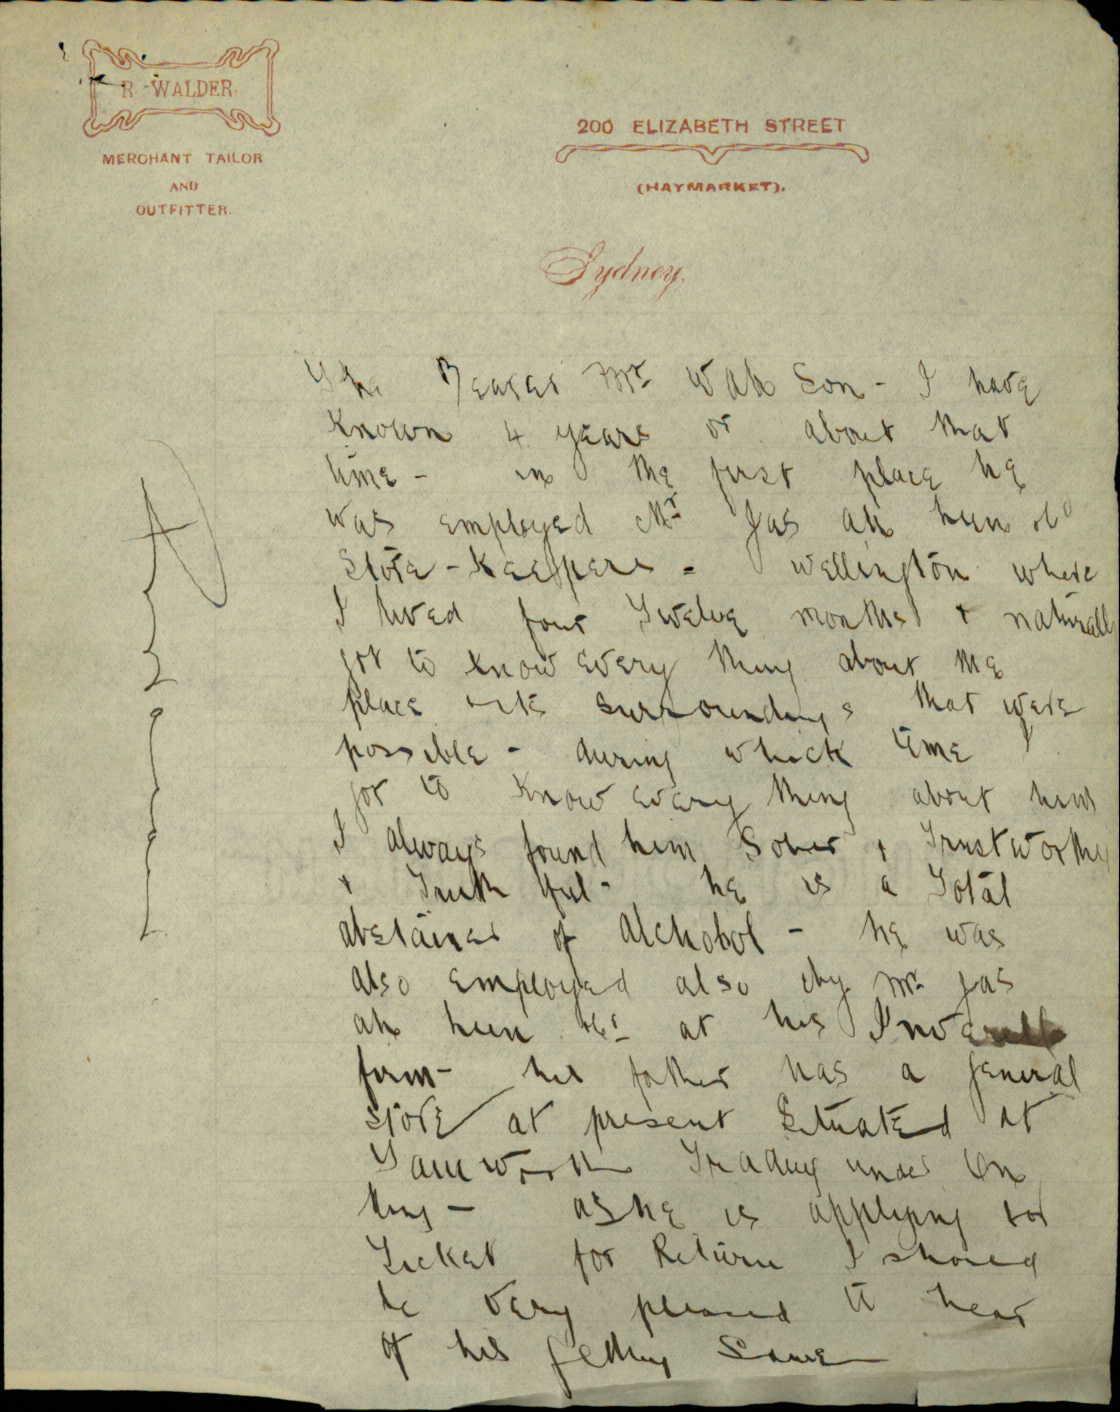 R. WALDER.
MERCHANT TAILOR
AND
OUTFITTER.
200 ELIZABETH STREET
(HAYMARKET).
Sydney.
The Bearer Mr Wah Son - I have
known 4 years or about that
time - in the first place he
was employed Mr Jas ah hun &Co
Store-Keepers - Wellington where
I lived four Twelve months & naturally
got to know every thing about the
place surroundings that were
possible - during which time I
got to know every thing about him
I always found him Sober & Trustworthy
& Truth ful - he is a Total
abstainer of Alchohol - he was
also employed also by Mr Jas
ah hun &Co at his Inverell
firm - his father has a general
store at present Situated at
Tamworth Trading under On
King - as he is applying for
Ticket for Return I should
be very pleased to hear
of his getting Same